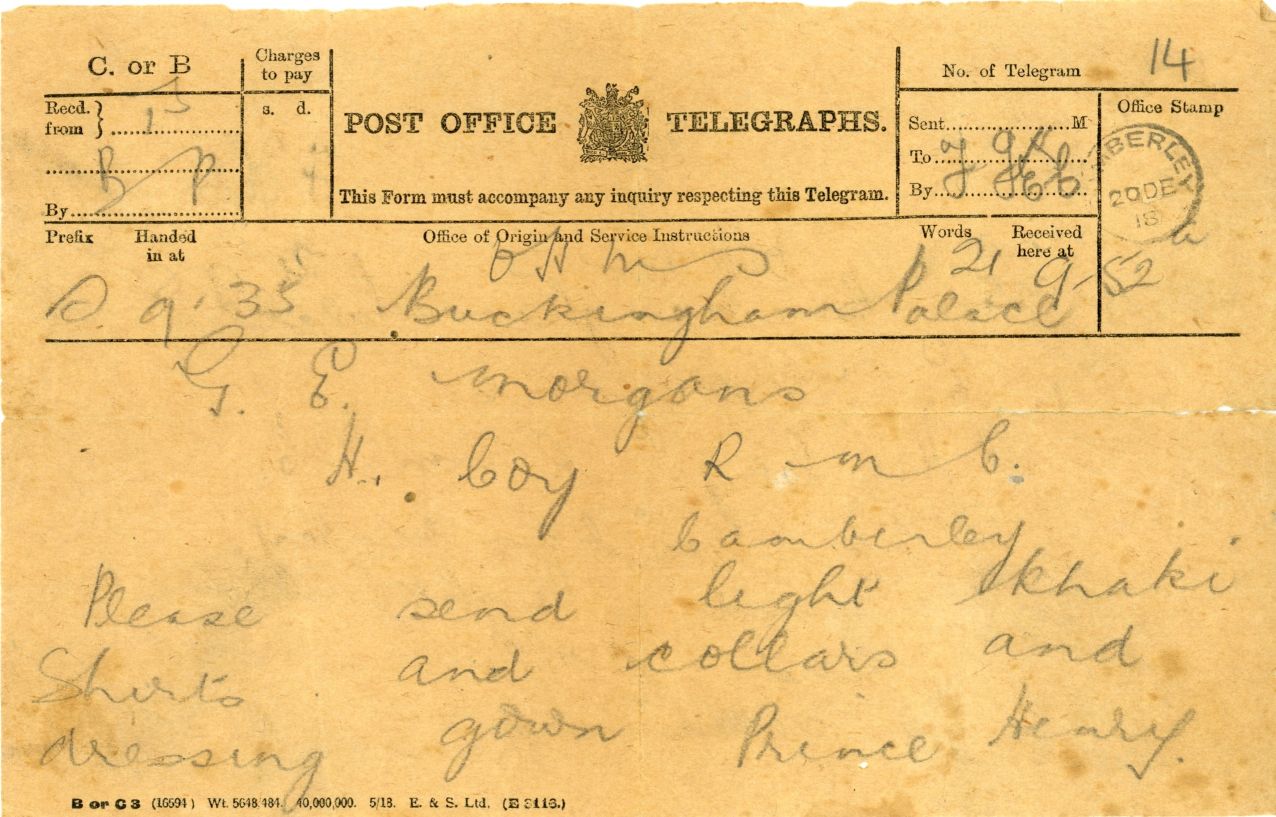 C. or B
Charges to pay
s. d.
Recd. from
By
POST OFFICE TELEGRAPHS.
This Form must accompany any inquiry respecting this Telegram.
No. of Telegram 14
Sent M
To
By
Office Stamp
MBERLEY
20 DE
18
Prefix Handed in at
Office of Origin and Service Instructions
Words Received here at
O H M S
21 9-52
9.35 Buckingham Palace
G. E. Morgans
H. Coy R M C.
Camberley
Please send light khaki
Shirts and collars and
dressing gown Prince Henry.
B or C 3 (16594) Wt. 5648/484. 40,000,000. 5/18. E. & S. Ltd. (E 3116.)